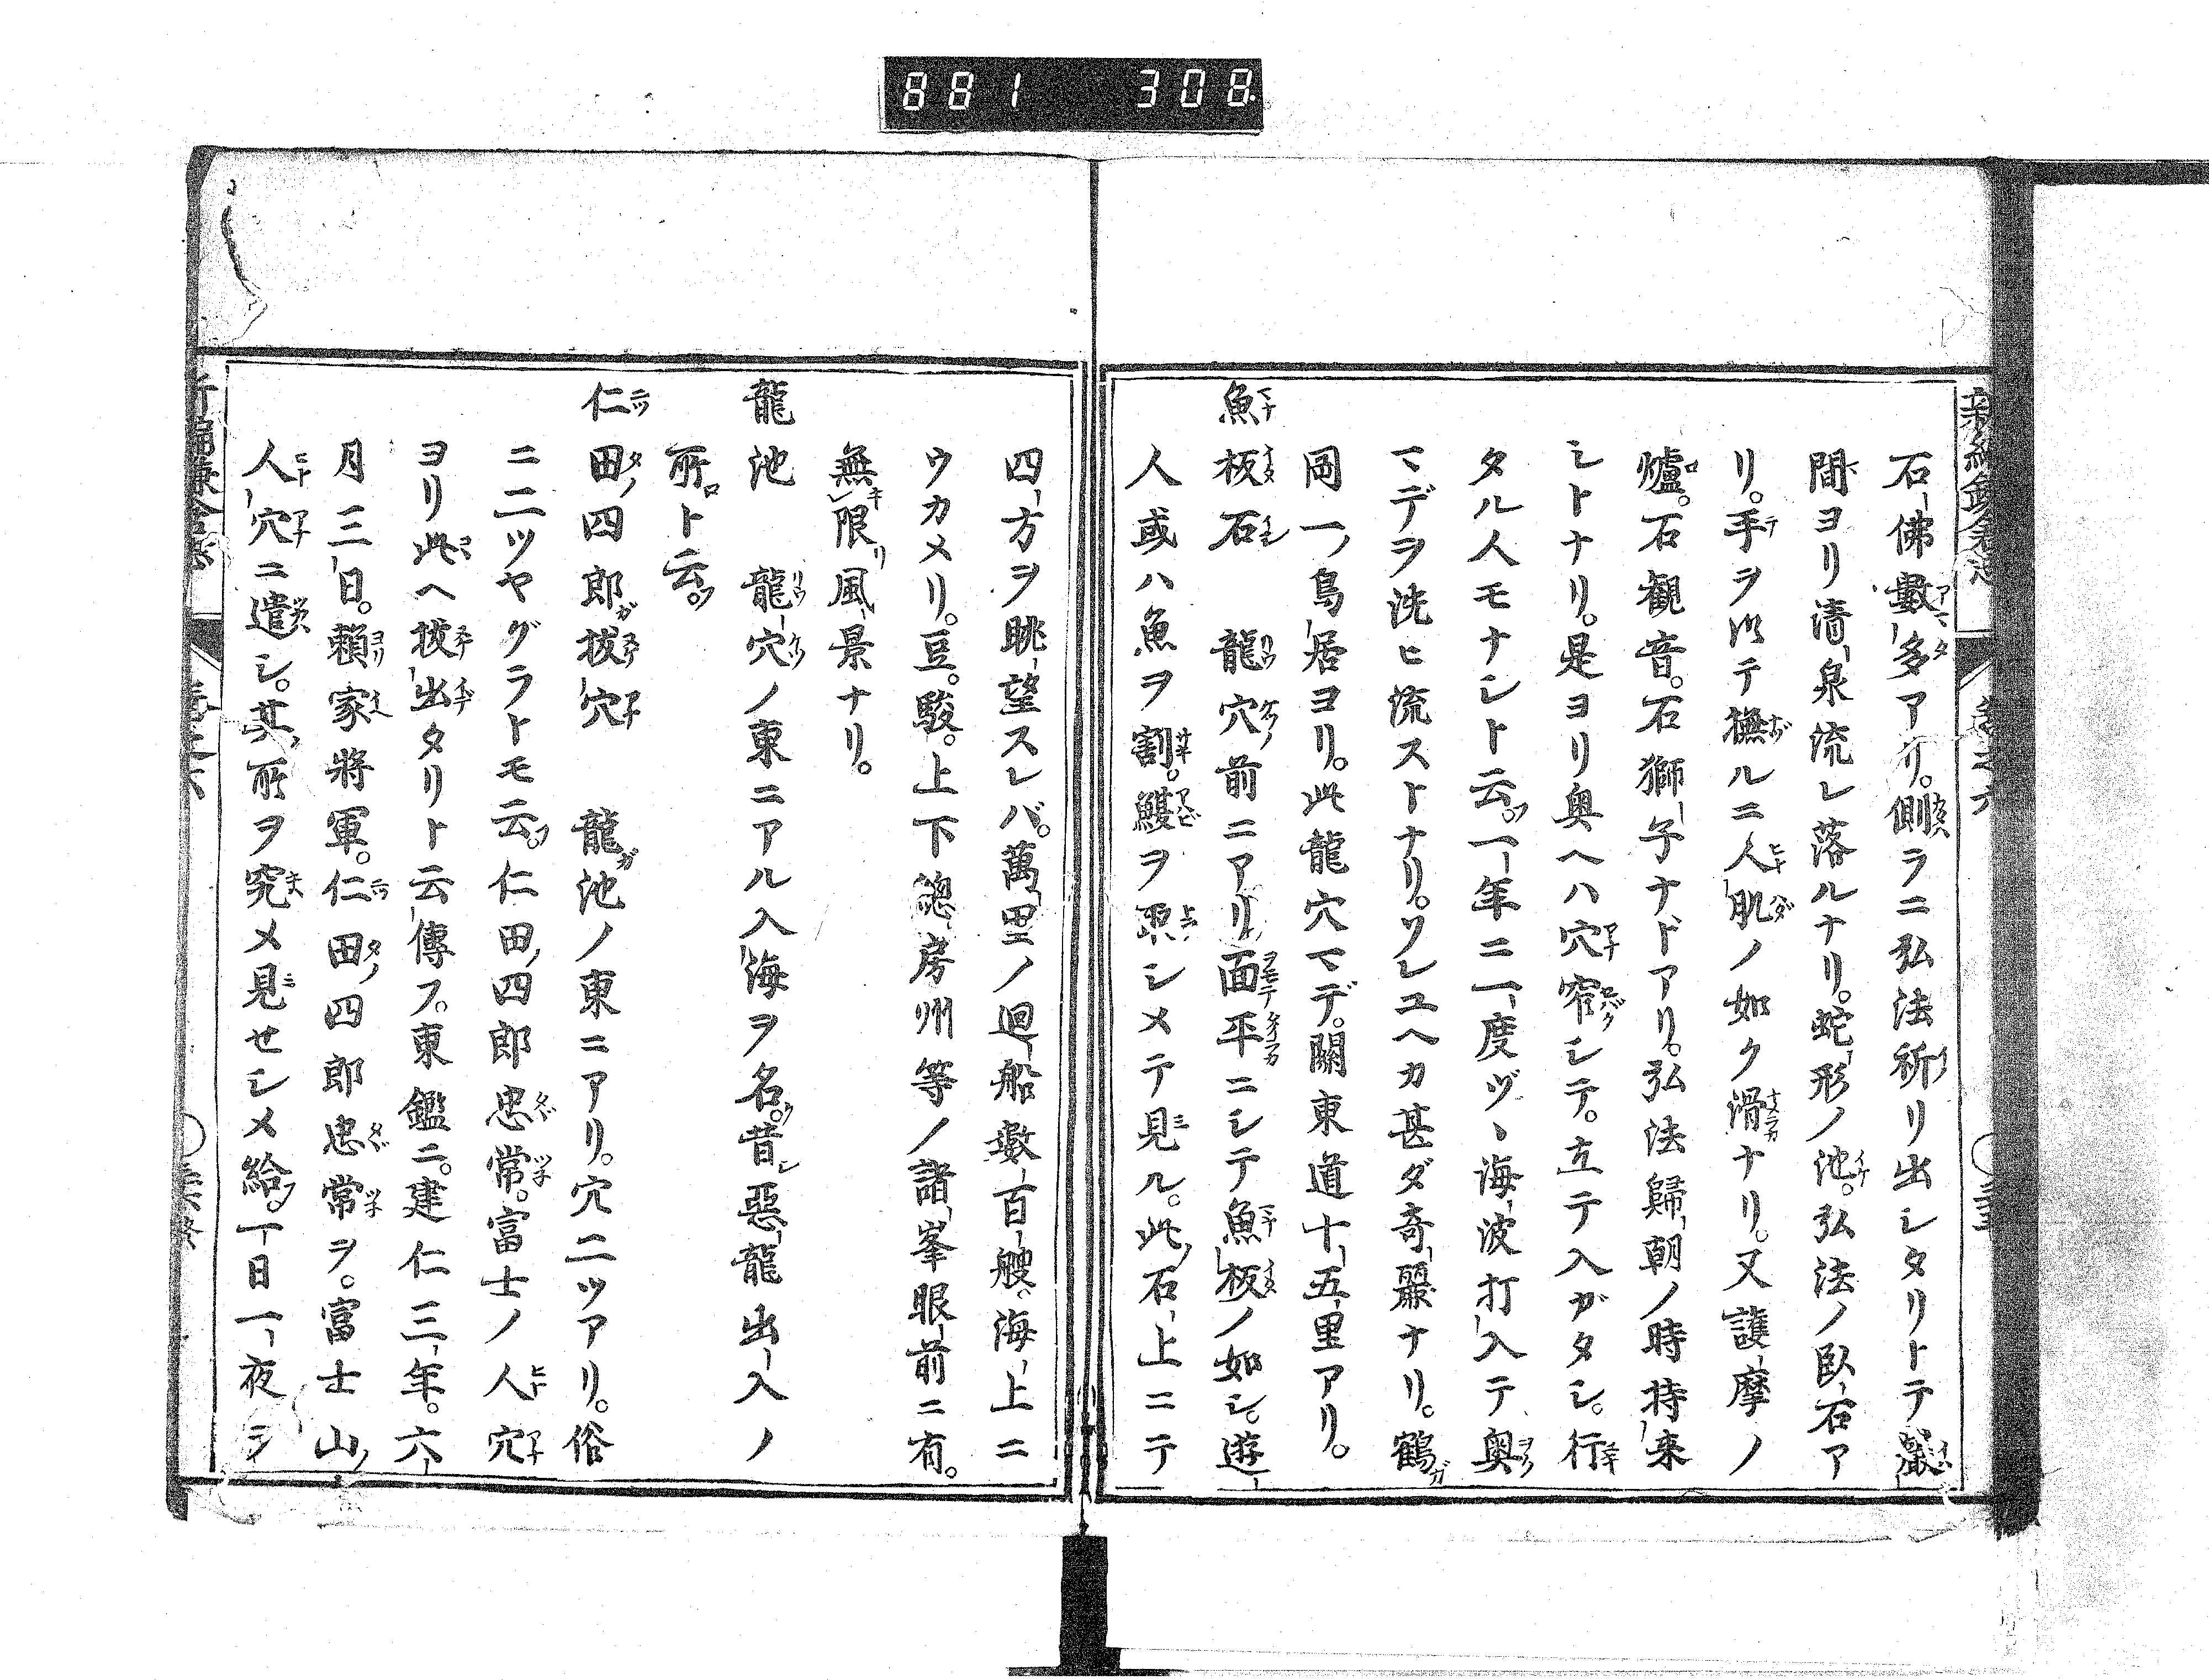 881 308
石佛數多アリ。側ラニ弘法祈リ出シタリトテ巖
間ヨリ清泉流レ落ルナリ。蛇形ノ池。弘法ノ臥石ア
リ。手ヲ以テ撫ルニ人肌ノ如ク滑ナリ。又護摩ノ
爐。石觀音。石獅子ナドアリ。弘法歸朝ノ時持来
シトナリ。是ヨリ奥ヘハ穴窄シテ。立テ入ガタシ。行
タル人モナシト云。一年ニ一度ヅヽ海波打入テ奥
マデヲ洗ヒ流ストナリ。ソレユヘカ甚ダ奇麗ナリ。鶴
岡一鳥居ヨリ。此龍穴マデ。關東道十五里アリ。
魚板石 龍穴前ニアリ面平ニシテ魚板ノ如シ。遊
人或ハ魚ヲ割。鰒ヲ取シメテ見ル。此石上ニテ
四方ヲ眺望スレバ。萬里ノ廻船數百艘。海上ニ
ウカメリ。豆。駿。上下總房州等ノ諸峯眼前ニ有。
無限風景ナリ。
龍池 龍穴ノ東ニアル入海ヲ名。昔惡龍出入ノ
所ト云。
仁田四郎拔穴 龍池ノ東ニアリ。穴二ツアリ。俗
ニ二ツヤグラトモ云。仁田四郎忠常。富士ノ人穴
ヨリ此ヘ拔出タリト云傳フ。東鑑ニ。建仁三年。六
月三日。頼家將軍。仁田四郎忠常ヲ。富士山ノ
人穴ニ遣シ。其所ヲ究メ見セシメ給。一日一夜ヲ